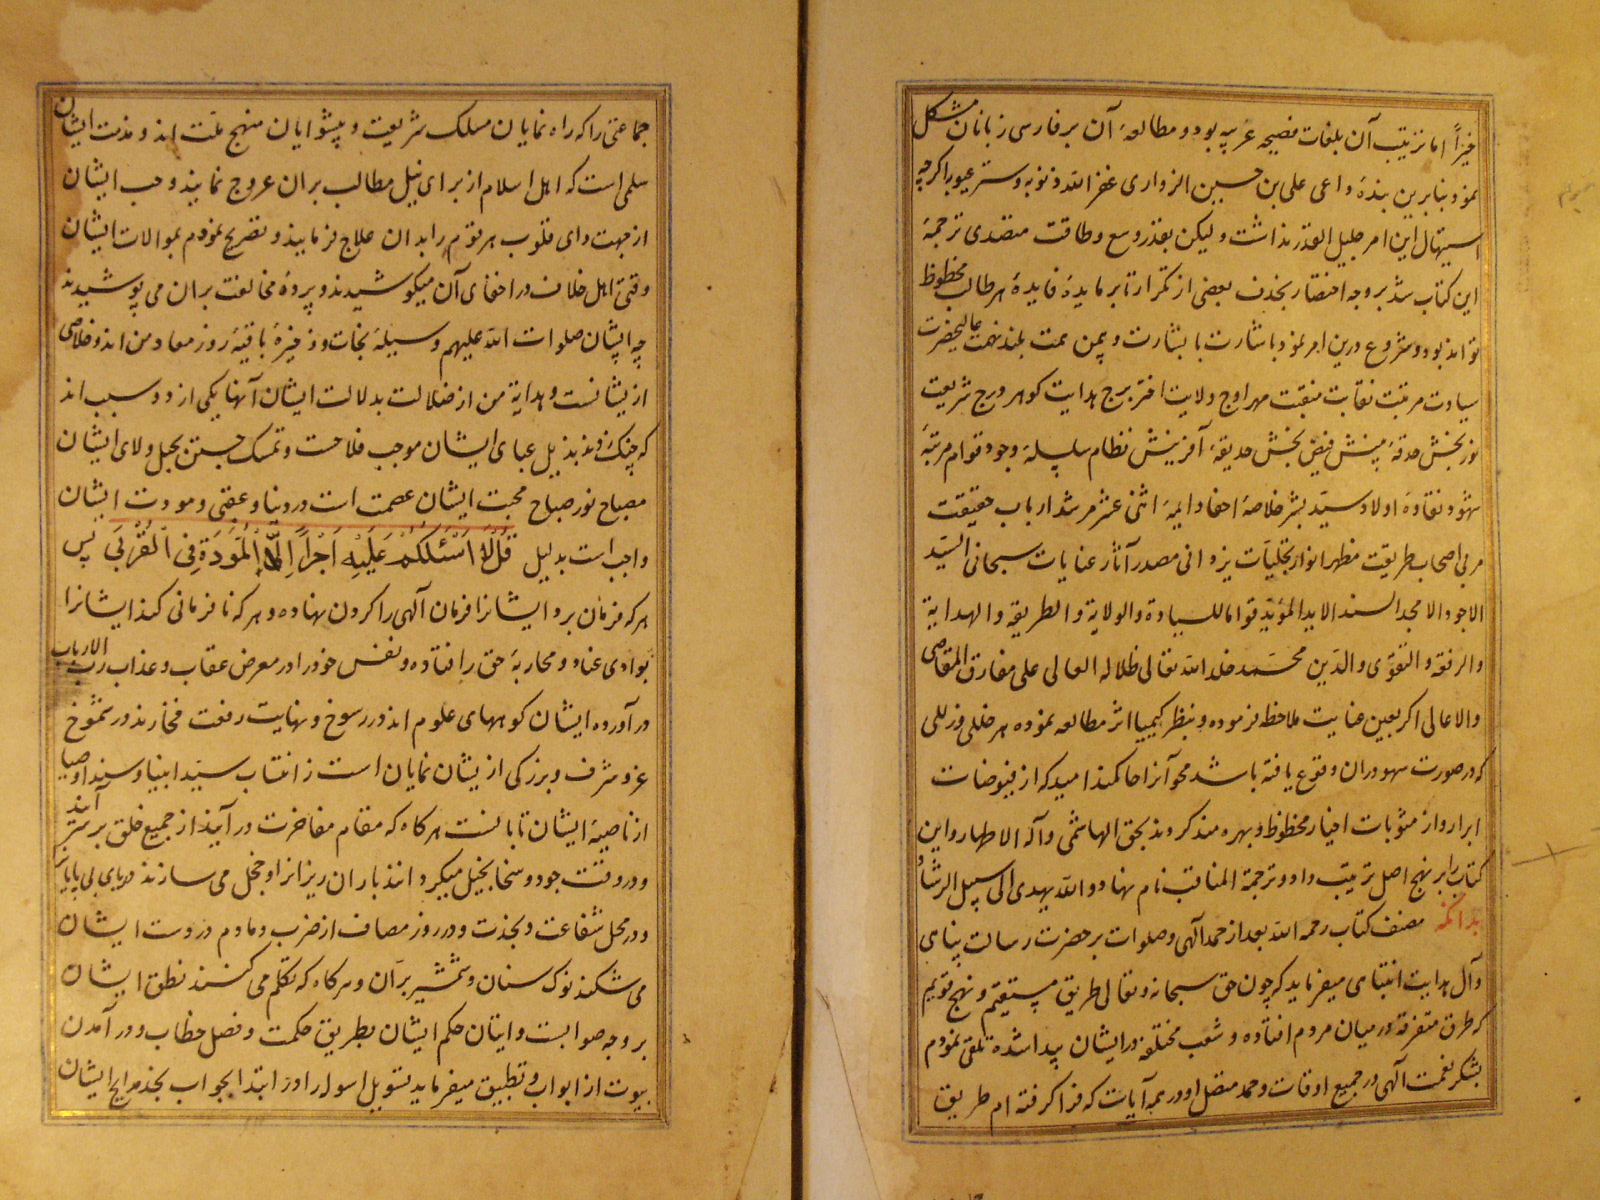 خیراً اما ترتیب آن بلغات فصیحه عربیه بود و مطالعهٔ آن بر فارسی زبانان مشکل
نمود بنابرین بندهٔ داعی علی بن حسین الزواری غفر الله ذنوبه و ستر عیوبه اکرچه
استیهال این امر جلیل القدر نداشت و لیکن بقدر وسع و طاقت متصدی ترجمهٔ
این کتاب شد بر وجه اختصار بحذف بعضی از تکرار تا بر مایدهٔ فایدهٔ هر طالب محظوظ
تواند بود و شروع درین امر نمود باشارت با بشارت و یمن همت بلند نهمت عالیحضرت
سیادت مرتبت نقابت منقبت مهر اوج ولایت اختر برج هدایت کوهر درج شریعت
نور بخش حدقهٔ بینش فیض بخش حدیقهٔ آفرینش نظام سلسلهٔ وجود قوام مرتبهٔ
شهود نقاوهٔ اولاد سیّد بشر خلاصهٔ احفاد ایمهٔ اثنی عشر مرشد ارباب حقیقت
مربی اصحاب طریقت مظهر انوار تجلیّات یزدانی مصدر آثار عنایات سبحانی السیّد
الاجود الامجد السند الاید المؤیّد قواما للسیادة والولایة و الطریقة و الهدایة
والرفعة و التقوی و الدّین محمّد خلد الله تعالی ظلاله العالی علی مفارق
والاعالی اکر بعین عنایت ملاحظه فرموده و بنظر کیمیا اثر مطالعه نموده هر خللی و زللی
که در صورت سهو دران وقوع یافته باشد محو آنرا حاکمند امید که از فیوضات
ابرار و از مثوبات اخیار محظوظ و بهره مند کردند بحق الهاشمی و آله الاطهار و این
کتاب را بر نهج اصل ترتیب داد و ترجمة المناقب نام نهاد و الله یهدی الی سبیل الرشاد
بدانکه مصنف کتاب رحمه الله بعد از حمد آلهی و صلوات بر حضرت رسالت پناهی
و آل هدایت انتمای میفرماید که چون حق سبحانه و تعالی طریق مستقیم و نهج قویم
که طرق متفرقه در میان مردم افتاده و شعب مختلفه در ایشان پیدا شده تلقی نمودم
بشکر نعمت آلهی در جمیع اوقات و حمد متصل او در همه آیات که فرا کرفته ام طریق
جماعتی را که راه نمایان مسلک شریعت و پیشوایان منهج ملّت اند و مذت ایشان
سلمی است که اهل اسلام از برای نیل مطالب بران عروج نمایند و حب ایشان
از جهت دای قلوب هر قوم را بدان علاج فرمایند و تصریح نمودم بموالات ایشان
وقتی اهل خلاف در اخفای آن میکوشیدند و پردهٔ مخالفت بران می پوشیدند
چه ایشان صلوات الله علیهم وسیلهٔ نجات و ذخیرهٔ باقیهٔ روز معاد من اند و خلاصی
ازیشانست و هدایة من از ضلالت بدلالت ایشان آنها یکی از دو سبب اند
که چنک زدند بذیل عبای ایشان موجب فلاحست و تمسک جستن بحبل ولای ایشان
مصباح نور صباح محبت ایشان عصمت است در دنیا و عقبی و مودت ایشان
واجب است بدلیل قُل لا اَسْئَلُکُمْ عَلَیْهِ اَجْراً اِلَّا الْمَوَدَّةَ فِی الْقُرْبَی پس
هر که فرمان برد ایشانرا فرمان آلهی را کردن نهاده و هر که نافرمانی کند ایشانرا
بوادی عناد و محاربهٔ حق را فتاده و نفس خود را در معرض عقاب و عذاب رب الارباب
درآورده ایشان کوههای علوم اند در رسوخ و نهایت رفعت فخارند در شموخ
عز و شرف و بزرکی ازیشان نمایان است ز انتساب سیّد انبیا و سید اوصیا
از ناصیهٔ ایشان تابانست هر کاه که مقام مفاخرت درآیند از جمیع خلق برتر آیند
و در وقت جود و سخا بخیل میکردانند باران ریزانرا و خجل می سازند دریای بی پایانرا
و در محل شفاعت و نجدت و در روز مصاف از ضرب دمادم در دست ایشان
می شکند نوک سنان و شمشیر برّان و هر کاه که تکلم می کنند نطق ایشان
بر وجه صوابست و ایتان حکم ایشان بطریق حکمت و فصل خطاب و درآمدن
بیوت از ابواب و تطبیق میفرماید بتسویل اسولرا و در ابتدا لجواب بخذ مراج ایشان